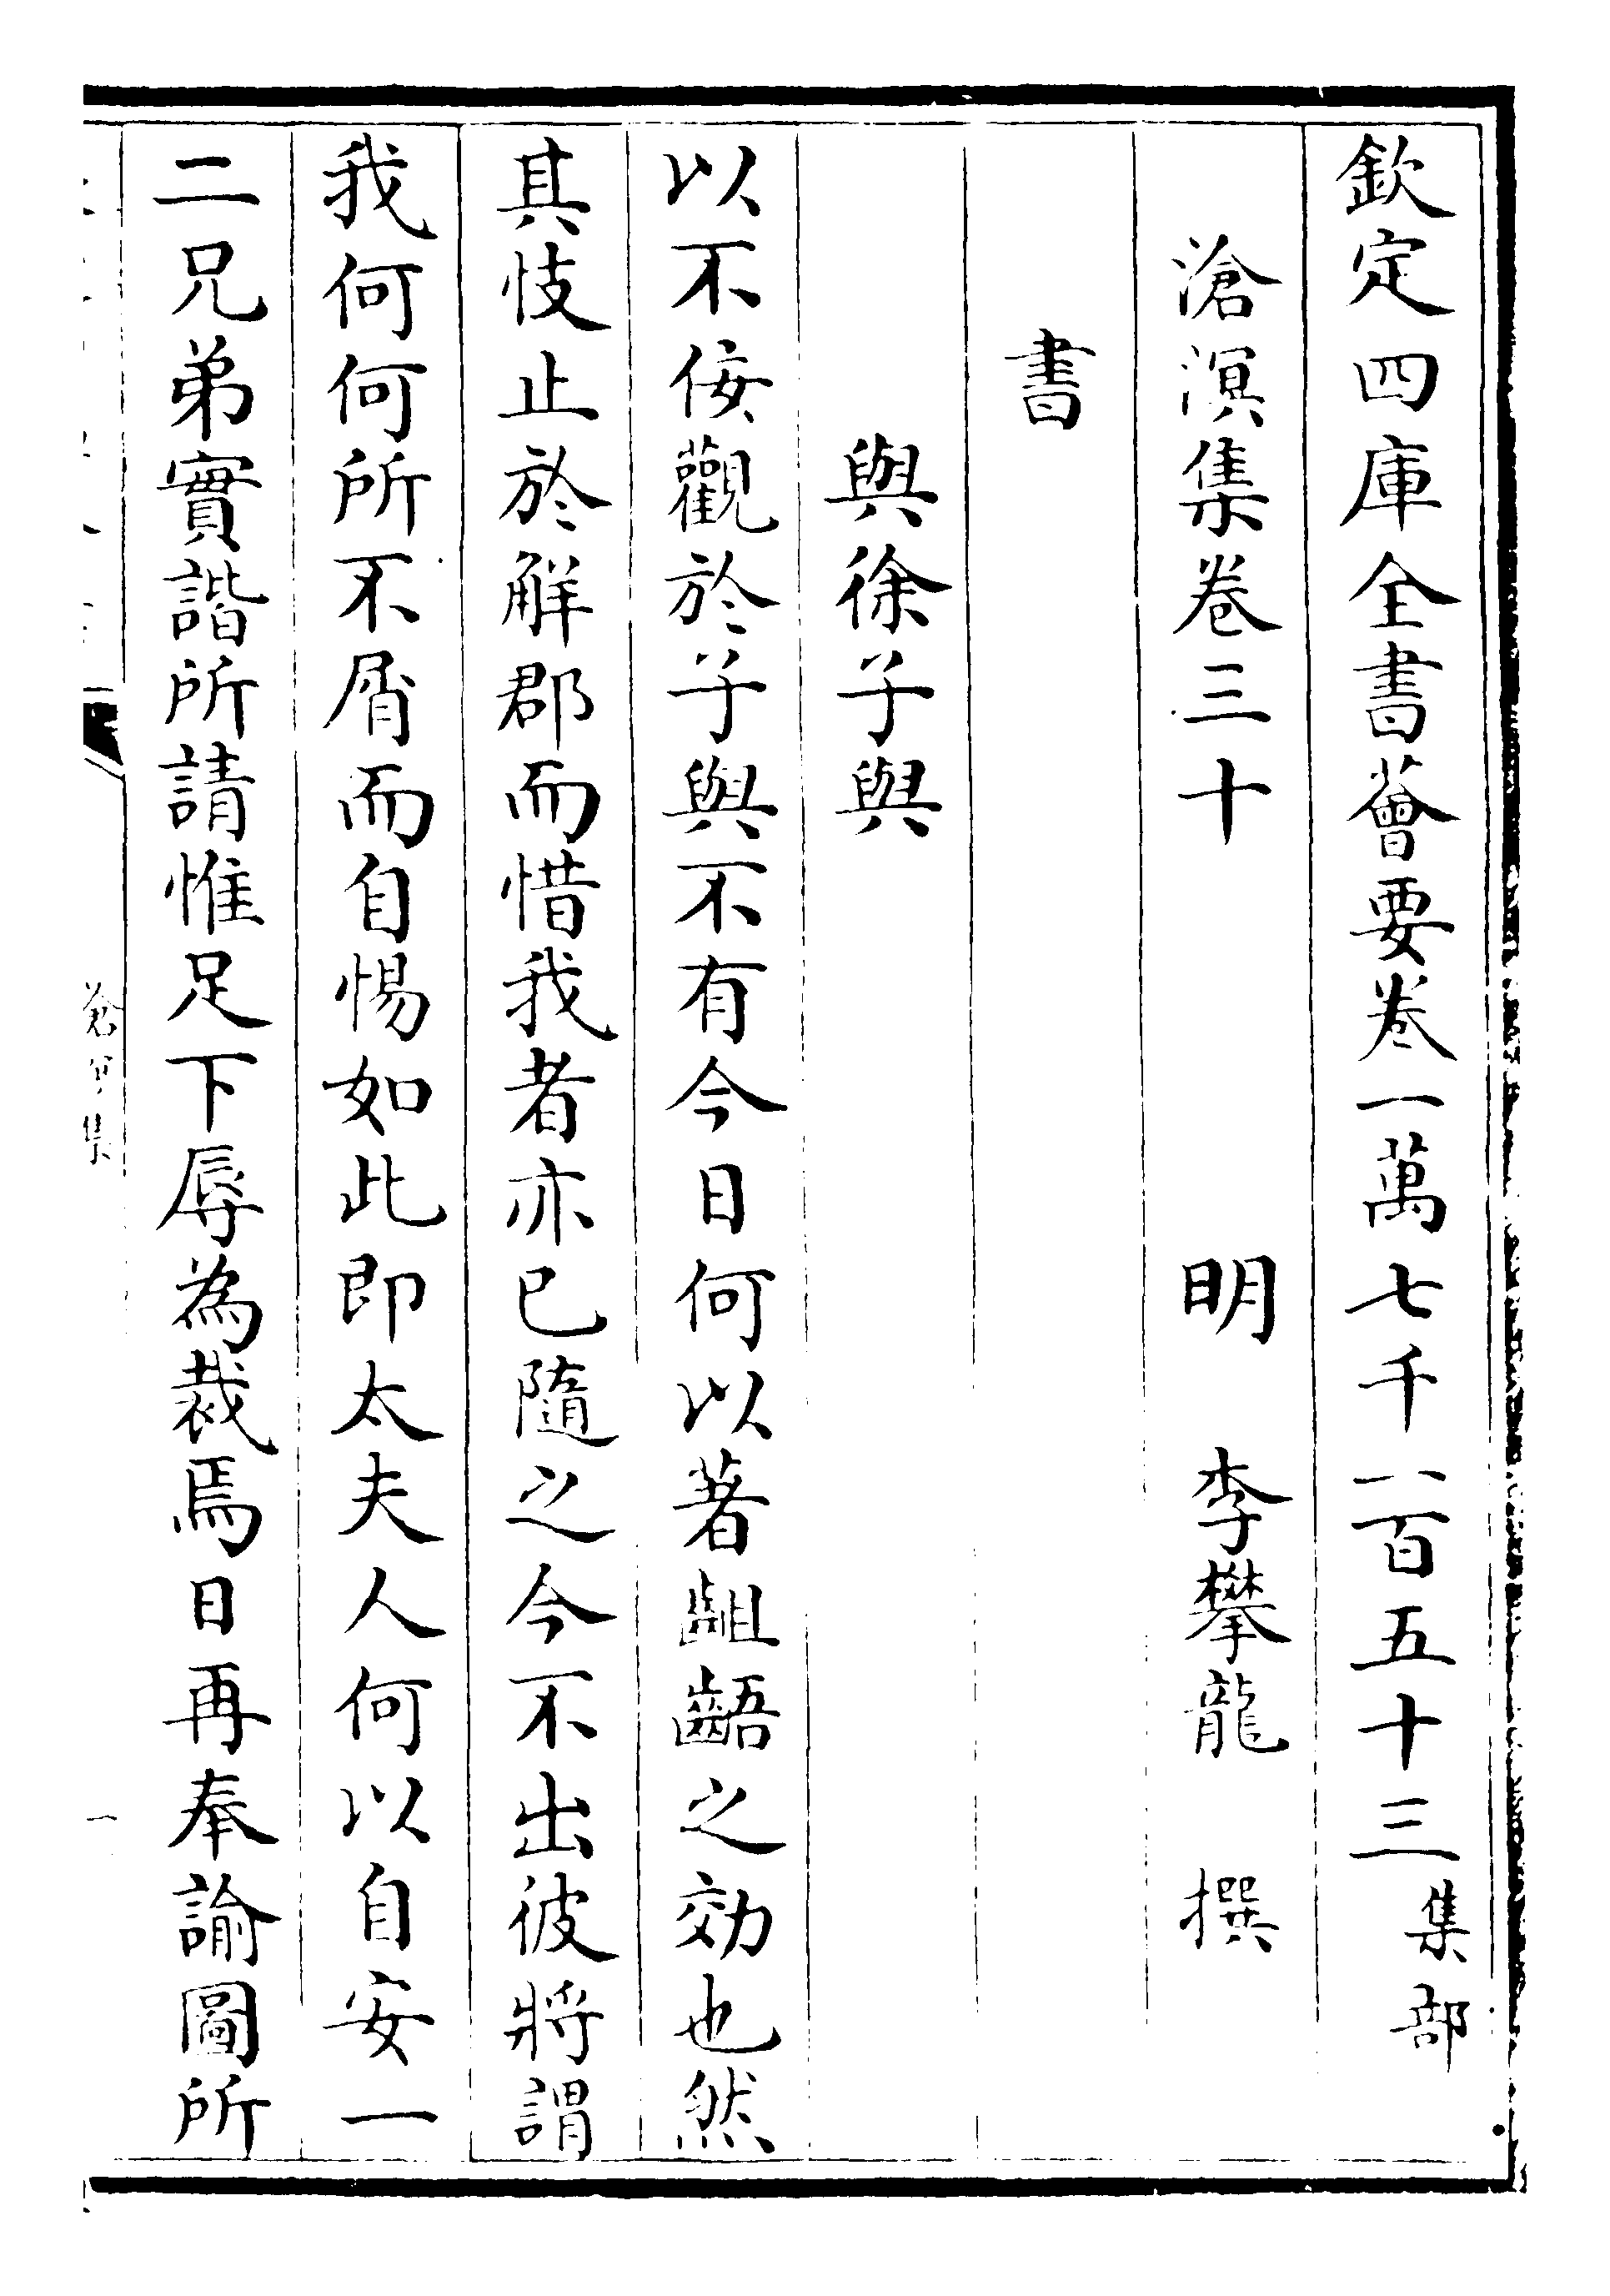 欽定四庫全書薈要卷一萬七千八百五十三集部
滄溟集卷三十 明 李攀龍 撰
書
與徐子與
以不佞觀於子與不有今日何以著齟齬之効也然
其忮止於解郡而惜我者亦已隨之今不出彼將謂
我何何所不屑而自惕如此即太夫人何以自安一
二兄弟實諧所請惟足下辱為裁焉日再奉諭圖所